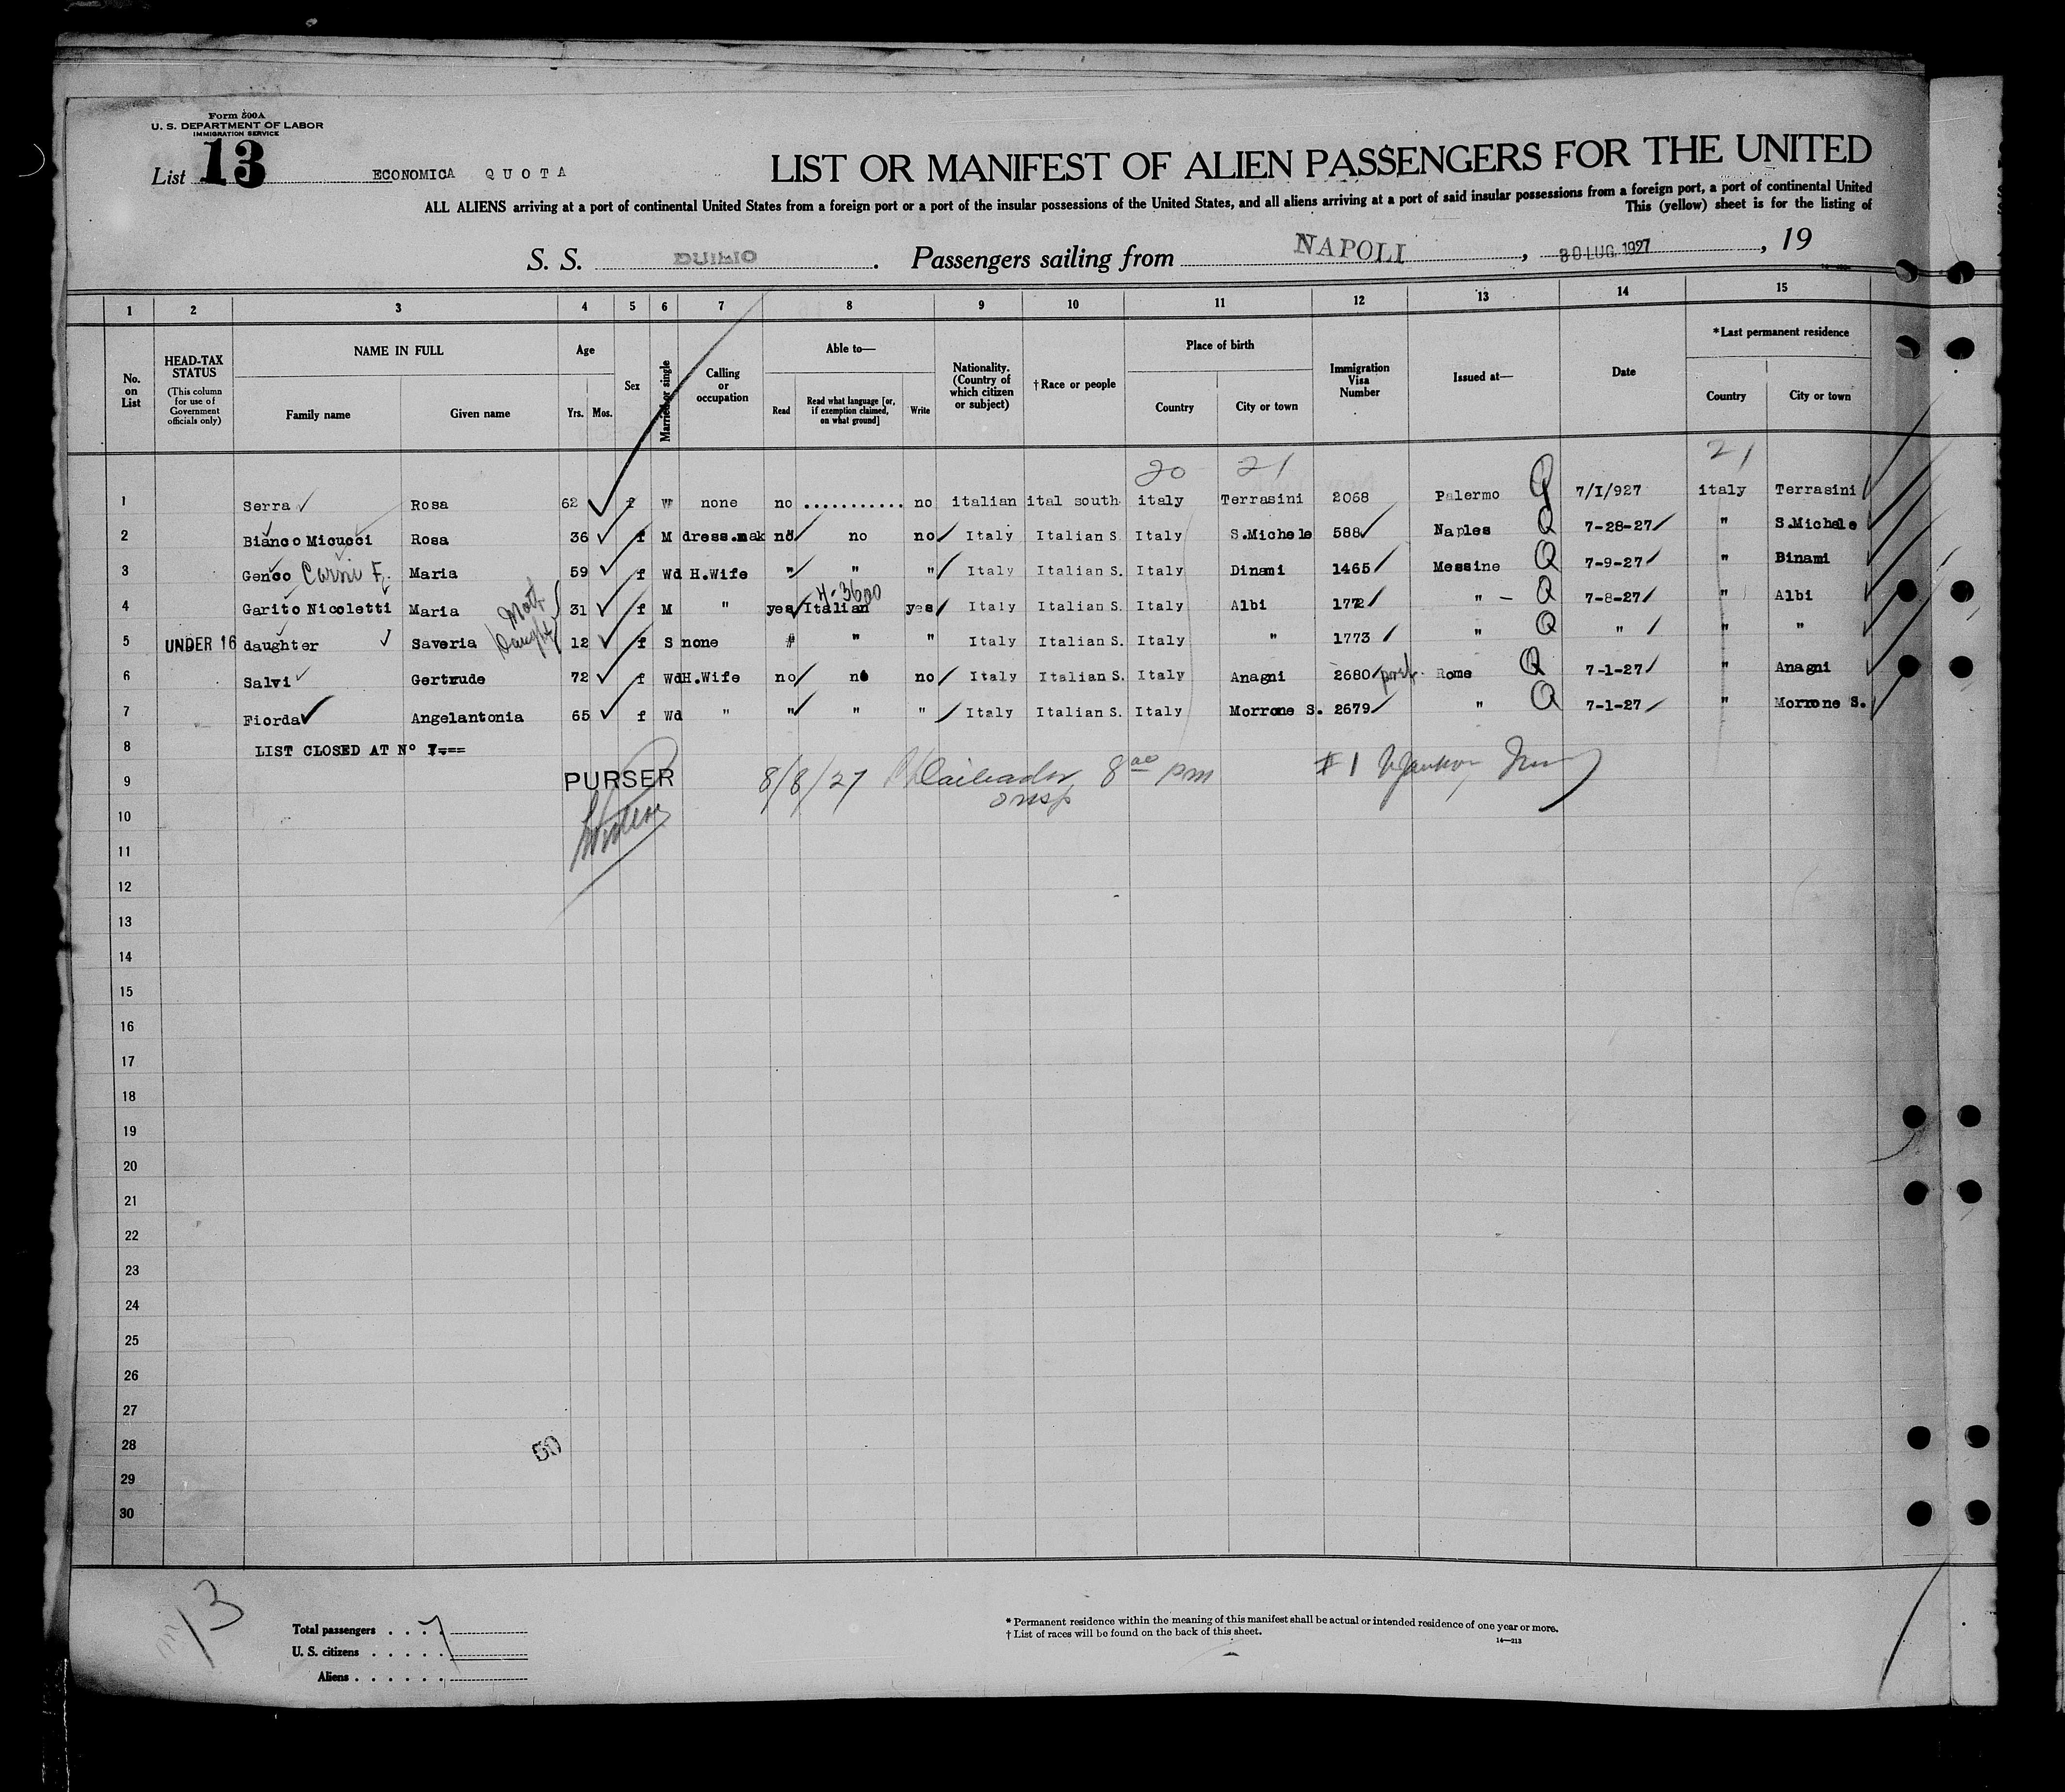 Form 500A
U. S. DEPARTMENT OF LABOR
IMMIGRATION SERVICE
List 13
ECONOMICA QUOTA
LIST OR MANIFEST OF ALIEN PASSENGERS FOR THE UNITED
ALL ALIENS arriving at a port of continental United States from a foreign port or a port of the insular possessions of the United States, and all aliens arriving at a port of said insular possessions from a foreign port, a port of continental United
This (yellow) sheet is for the listing of
S. S. DUILIO. Passengers sailing from NAPOLI, 30 LUG. 1927, 19
1 2 3 4 5 6 7 8 9 10 11 12 13 14 15
No. on List
HEAD-TAX STATUS
(This column for use of Government officials only)
NAME IN FULL
Family name Given name
Age
Yrs. Mos.
Sex
Married or single
Calling or occupation
Able to—
Read
Read what language [or, if exemption claimed, on what ground]
Write
Nationality. (Country of which citizen or subject)
†Race or people
Place of birth
Country City or town
Immigration Visa Number
Issued at—
Date
*Last permanent residence
Country City or town
20 21 21
1 Serra Rosa 62 f W none no ........... no italian ital south italy Terrasini 2068 Palermo Q 7/I/927 italy Terrasini
2 Bianco Micucci Rosa 36 f M dress.mak no no no Italy Italian S. Italy S.Michele 588 Naples Q 7-28-27 " S.Michele
3 Genco Maria 59 f Wd H.Wife " " " Italy Italian S. Italy Dinami 1465 Messine Q 7-9-27 " Binami
4-3600
4 Garito Nicoletti Maria Moth 31 f M " yes Italian yes Italy Italian S. Italy Albi 1772 " - Q 7-8-27 " Albi
5 UNDER 16 daughter Saveria Daught 12 f S none " " " Italy Italian S. Italy " 1773 " Q " " "
6 Salvi Gertrude 72 f Wd H.Wife no no no Italy Italian S. Italy Anagni 2680 Rome Q 7-1-27 " Anagni
7 Fiorda Angelantonia 65 f Wd " " " " Italy Italian S. Italy Morrone S. 2679 " Q 7-1-27 " Morrone S.
8 LIST CLOSED AT N° 7---
9 PURSER 8/8/27 8 00 pm #1
10
11
12
13
14
15
16
17
18
19
20
21
22
23
24
25
26
27
28
50
29
30
13
Total passengers . . . . 7
U. S. citizens . . . . .
Aliens . . . . . .
* Permanent residence within the meaning of this manifest shall be actual or intended residence of one year or more.
† List of races will be found on the back of this sheet.
14—213